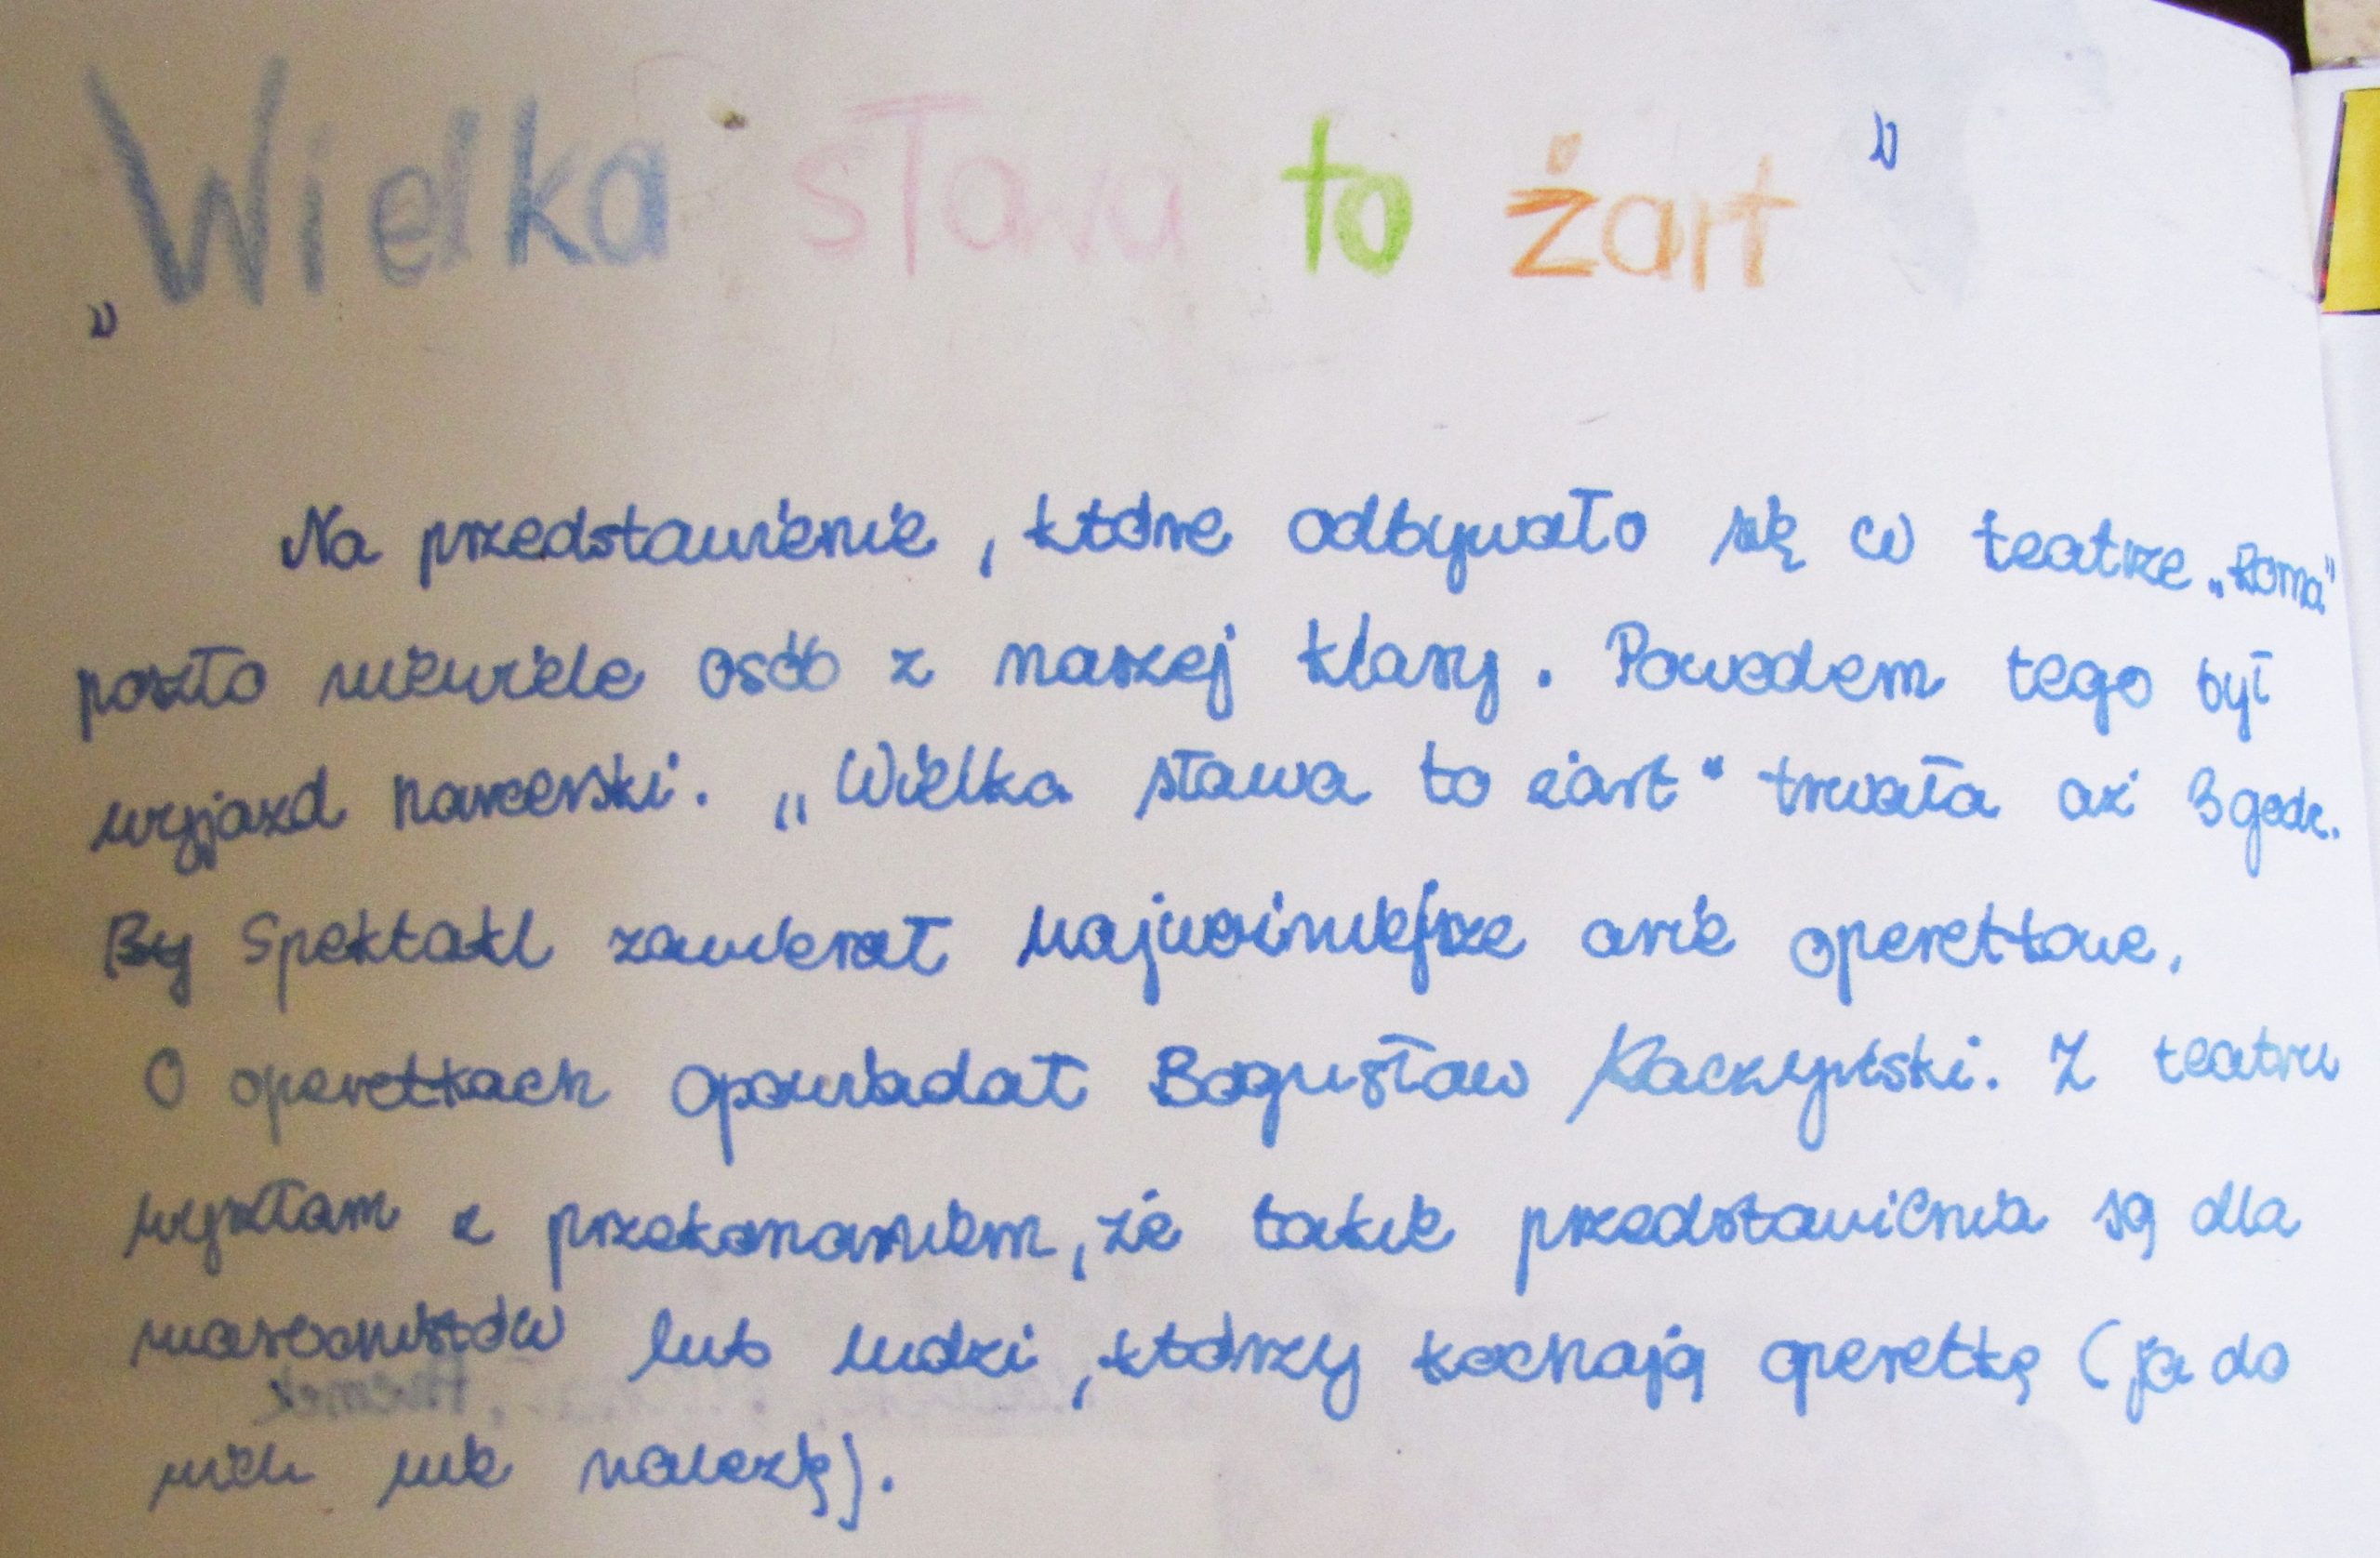 „Wielka sława to żart"
Na przedstawienie, które odbywało się w teatrze „Roma"
poszło niewiele osób z naszej klasy. Powodem tego był
wyjazd narcerski. „Wielka sława to żart" trwała aż 3 godz.
By Spektakl zawierał najważniejsze arie operetkowe.
O operetkach opowiadał Bogusław Kaczyński. Z teatru
wyszłam z przekonaniem, że takie przedstawienia są dla
lub ludzi, którzy kochają operetkę (ja do
nich nie należę).